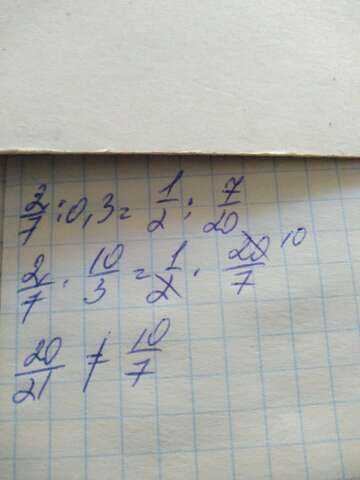 2/7 : 0,3 = 1/2 : 7/20
2/7 · 10/3 = 1/2 · 20/7 10
20/21 ≠ 10/7